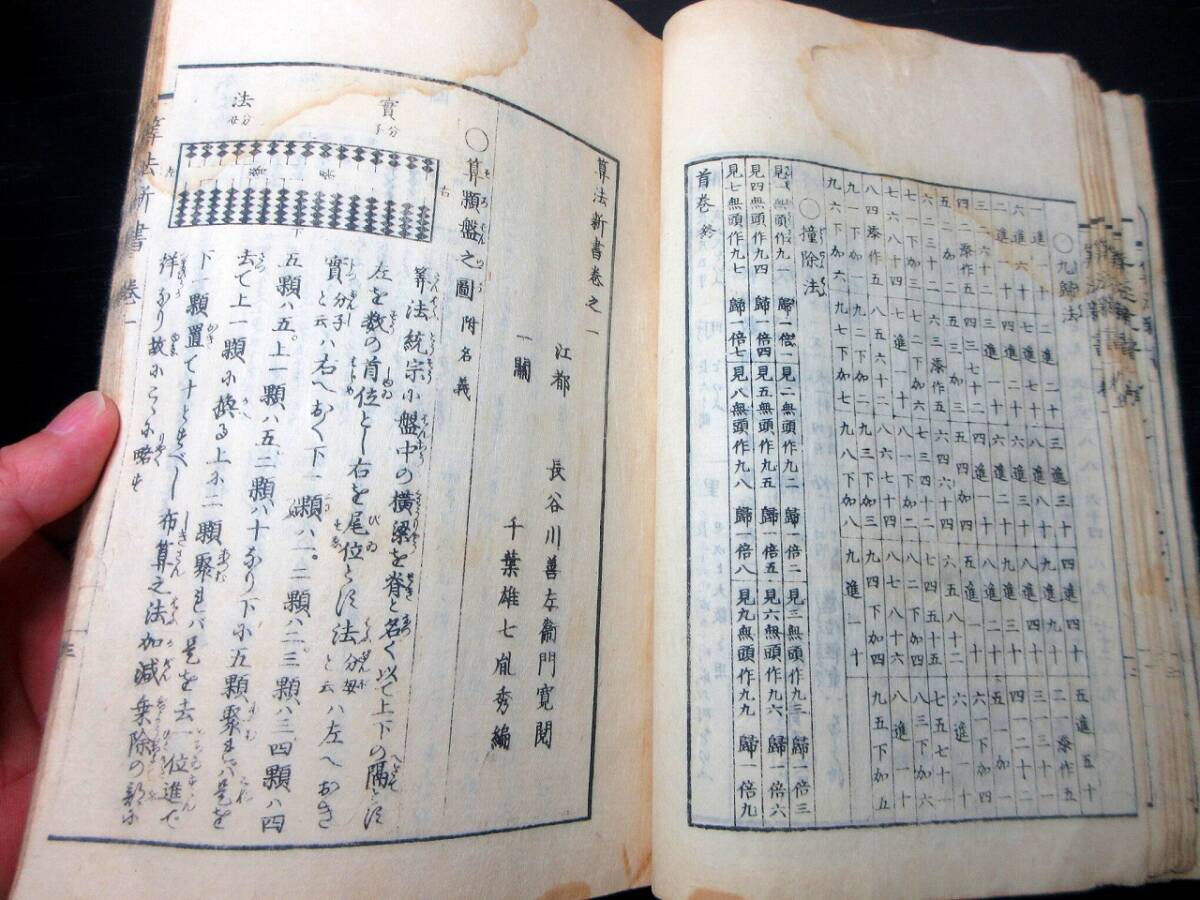 ○九歸法
一進一十 二進二十 三進三十 四進四十 五進五十
六進六十 七進七十 八進八十 九進九十 二一添作五
二進一十 四進二十 六進三十 八進四十 三一三十一
三二六十二 三進一十 六進二十 九進三十 四一二十二
四二添作五 四三七十二 四進一十 八進二十 五一加一
五二加二 五三加三 五四加四 五進一十 六一下加四
六二三十二 六三添作五 六四六十四 六五八十二 六進一十
七一下加三 七二下加六 七三四十二 七四五十五 七五七十一
七六八十四 七進一十 八一下加二 八二下加四 八三下加六
八四添作五 八五六十二 八六七十四 八七八十六 八進一十
九一下加一 九二下加二 九三下加三 九四下加四 九五下加五
九六下加六 九七下加七 九八下加八 九進一十
○撞除法
見一無頭作九一 歸一倍一 見二無頭作九二 歸一倍二 見三無頭作九三 歸一倍三
見四無頭作九四 歸一倍四 見五無頭作九五 歸一倍五 見六無頭作九六 歸一倍六
見七無頭作九七 歸一倍七 見八無頭作九八 歸一倍八 見九無頭作九九 歸一倍九
首巻終
算法新書巻之一
江都 長谷川善左衞門寛閲
一關 千葉雄七胤秀編
○算顆盤之圖附名義
實分子
法分母
右
左
上
下
梁
脊
算法統宗小盤中の横梁を脊と名く以て上下の隔とす
左を数の首位とし右を尾位とす法分母と云ハ左へおき
實分子と云ハ右へおく下一顆ハ一。二顆ハ二、三顆ハ三、四顆ハ四
五顆ハ五。上一顆ハ五、二顆ハ十なり下に五顆聚れハ是を
去て上一顆に換る上に二顆聚れハ是を去一位進て
下一顆置て十とすべし布算之法加減乗除の部に
祥なり故にこゝに略す
算法新書巻一